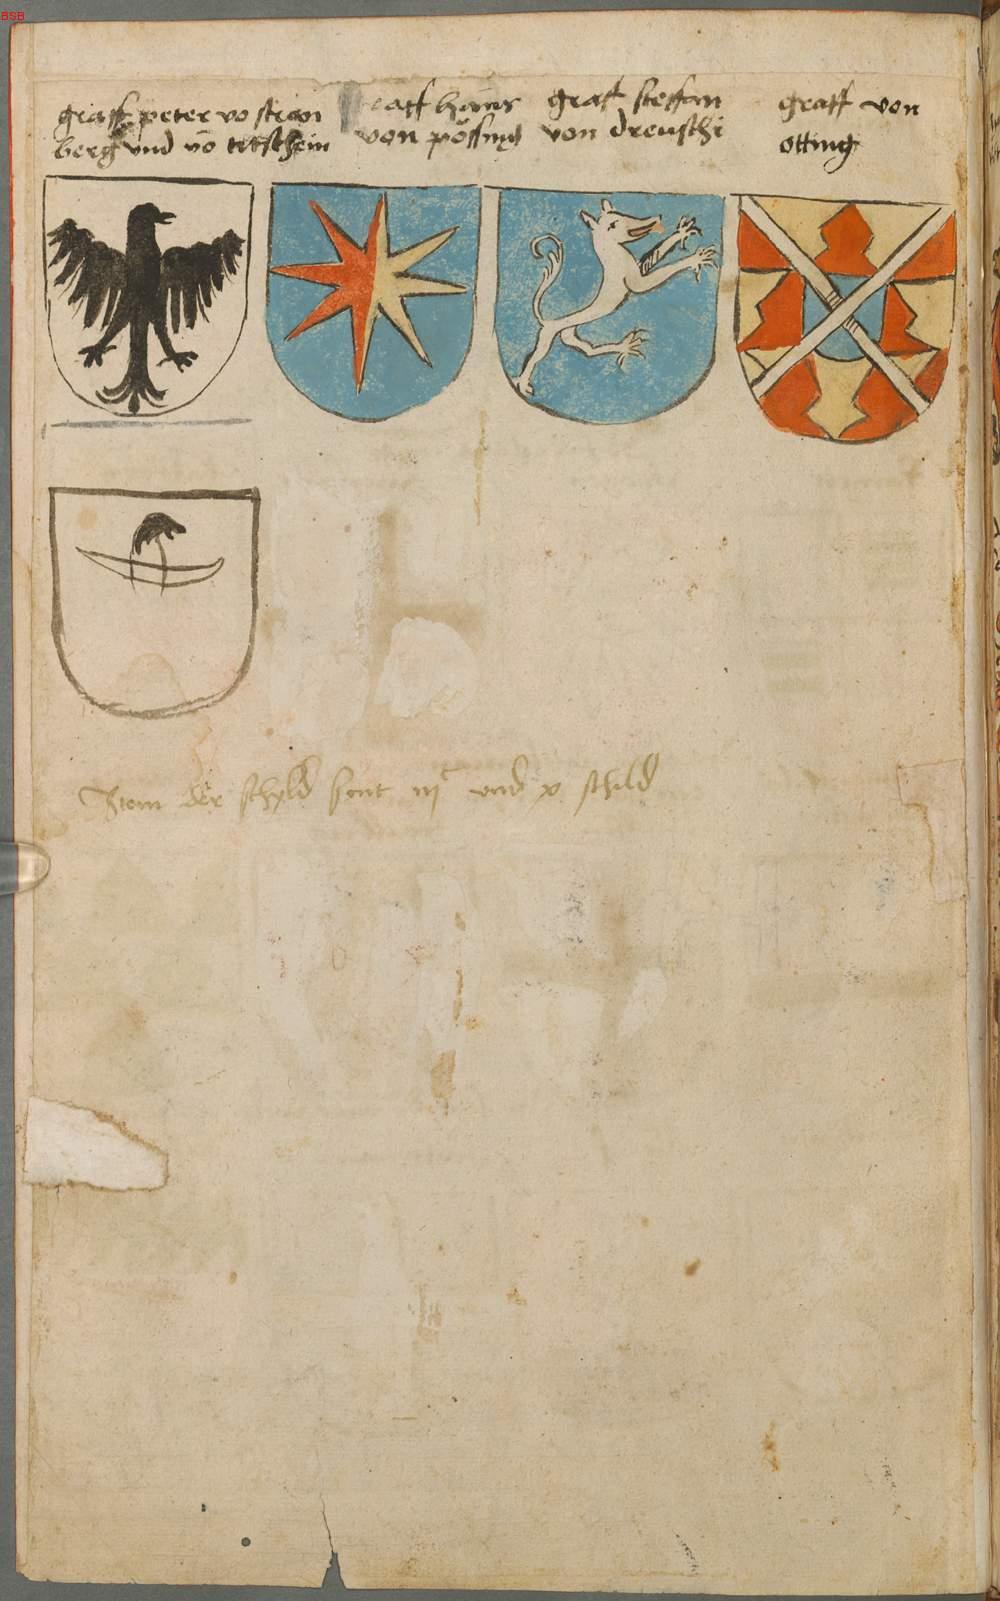 BSB
graff peter vo stran
berg und vō titschein
graff hanns
von possing
graf steffan
von dreuschi
graff von
otting
Item der schyld sint iij c und x schild